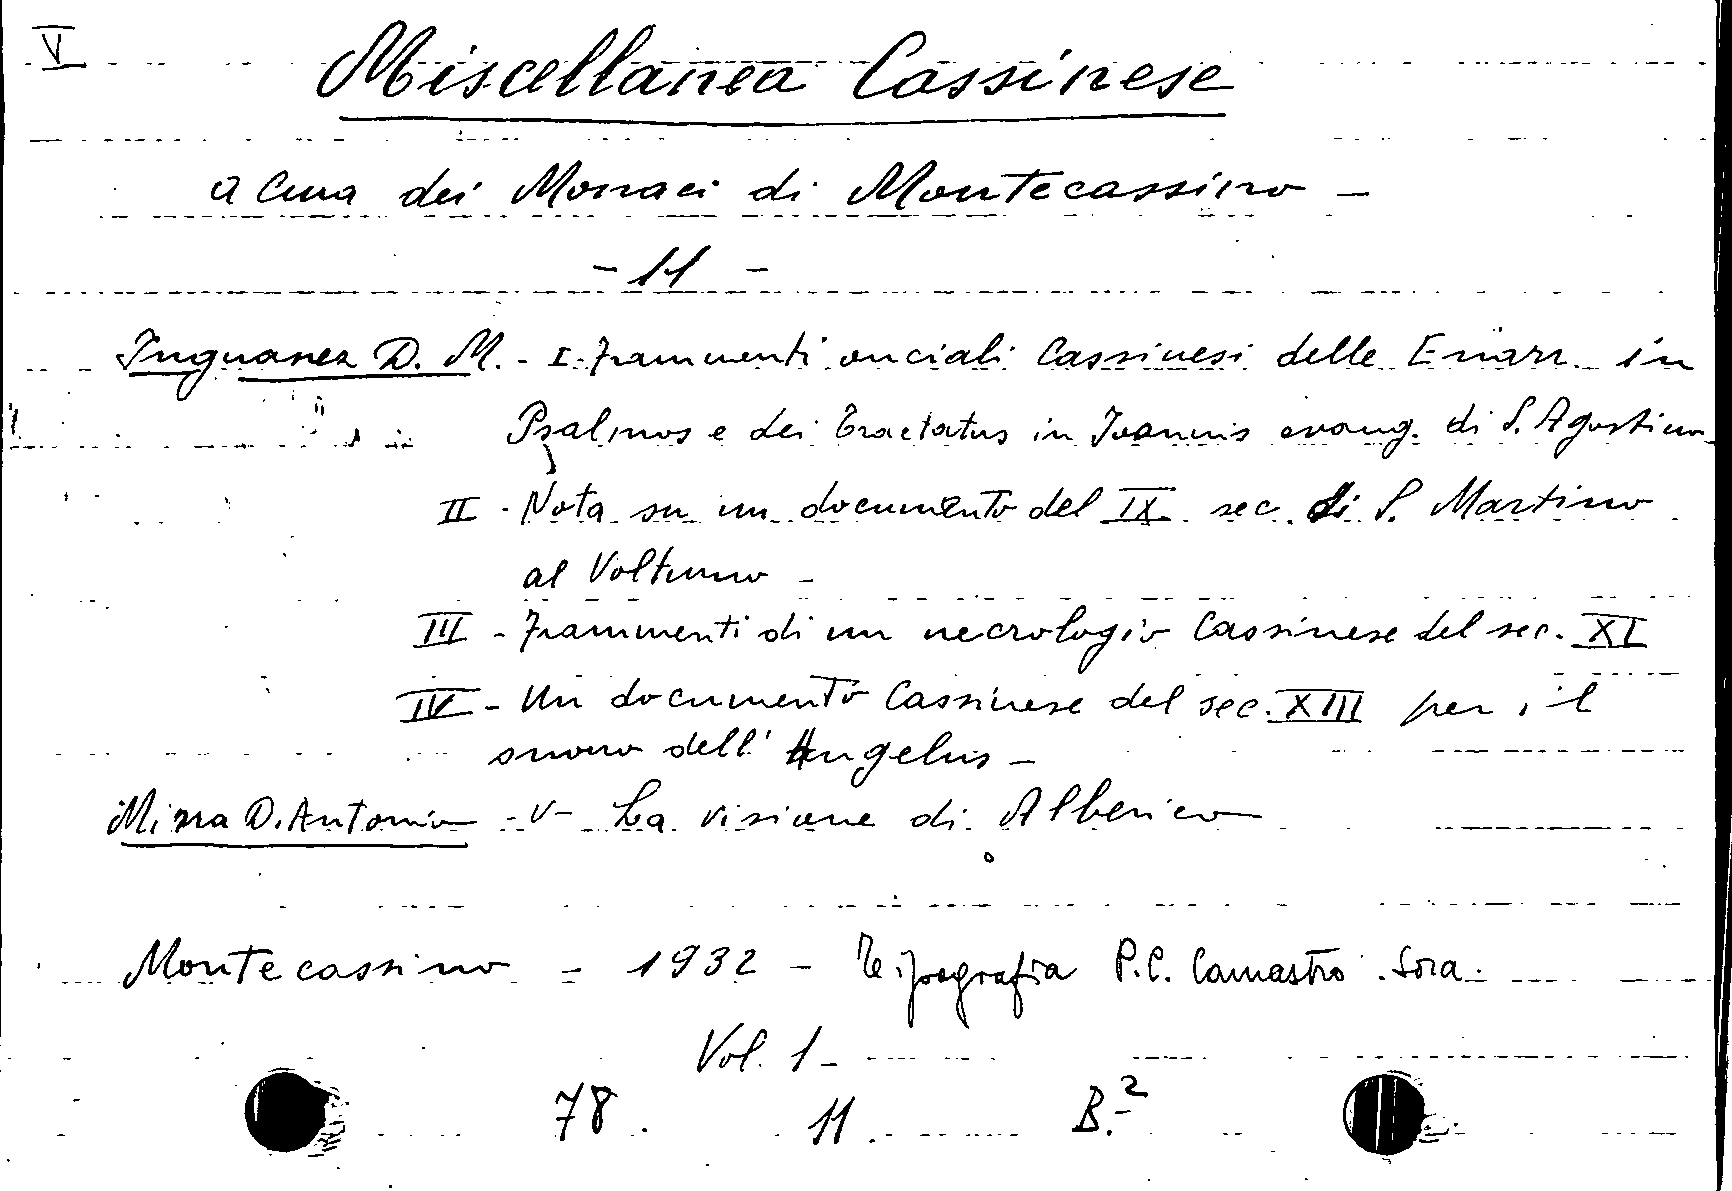 V
Miscellanea Cassinese
a Cura dei Monaci di Montecassino -
- 11 -
Inguanez D. M. - I - frammenti onciali Cassinesi delle Enarr. in
Psalmos e dei Tractatus in Joannis evang. di S. Agostino
II - Nota su un documento del IX sec. di S. Martino
al Volturno -
III - frammenti di un necrologio Cassinese del sec. XI
IV - Un documento Cassinese del sec. XIII per il
suono dell' Angelus -
Mirra D. Antonio - V - La visione di Alberico
Montecassino - 1932 - Tipografia P.C. Camastro. Sora.
Vol. 1 -
78. 11. B.-2